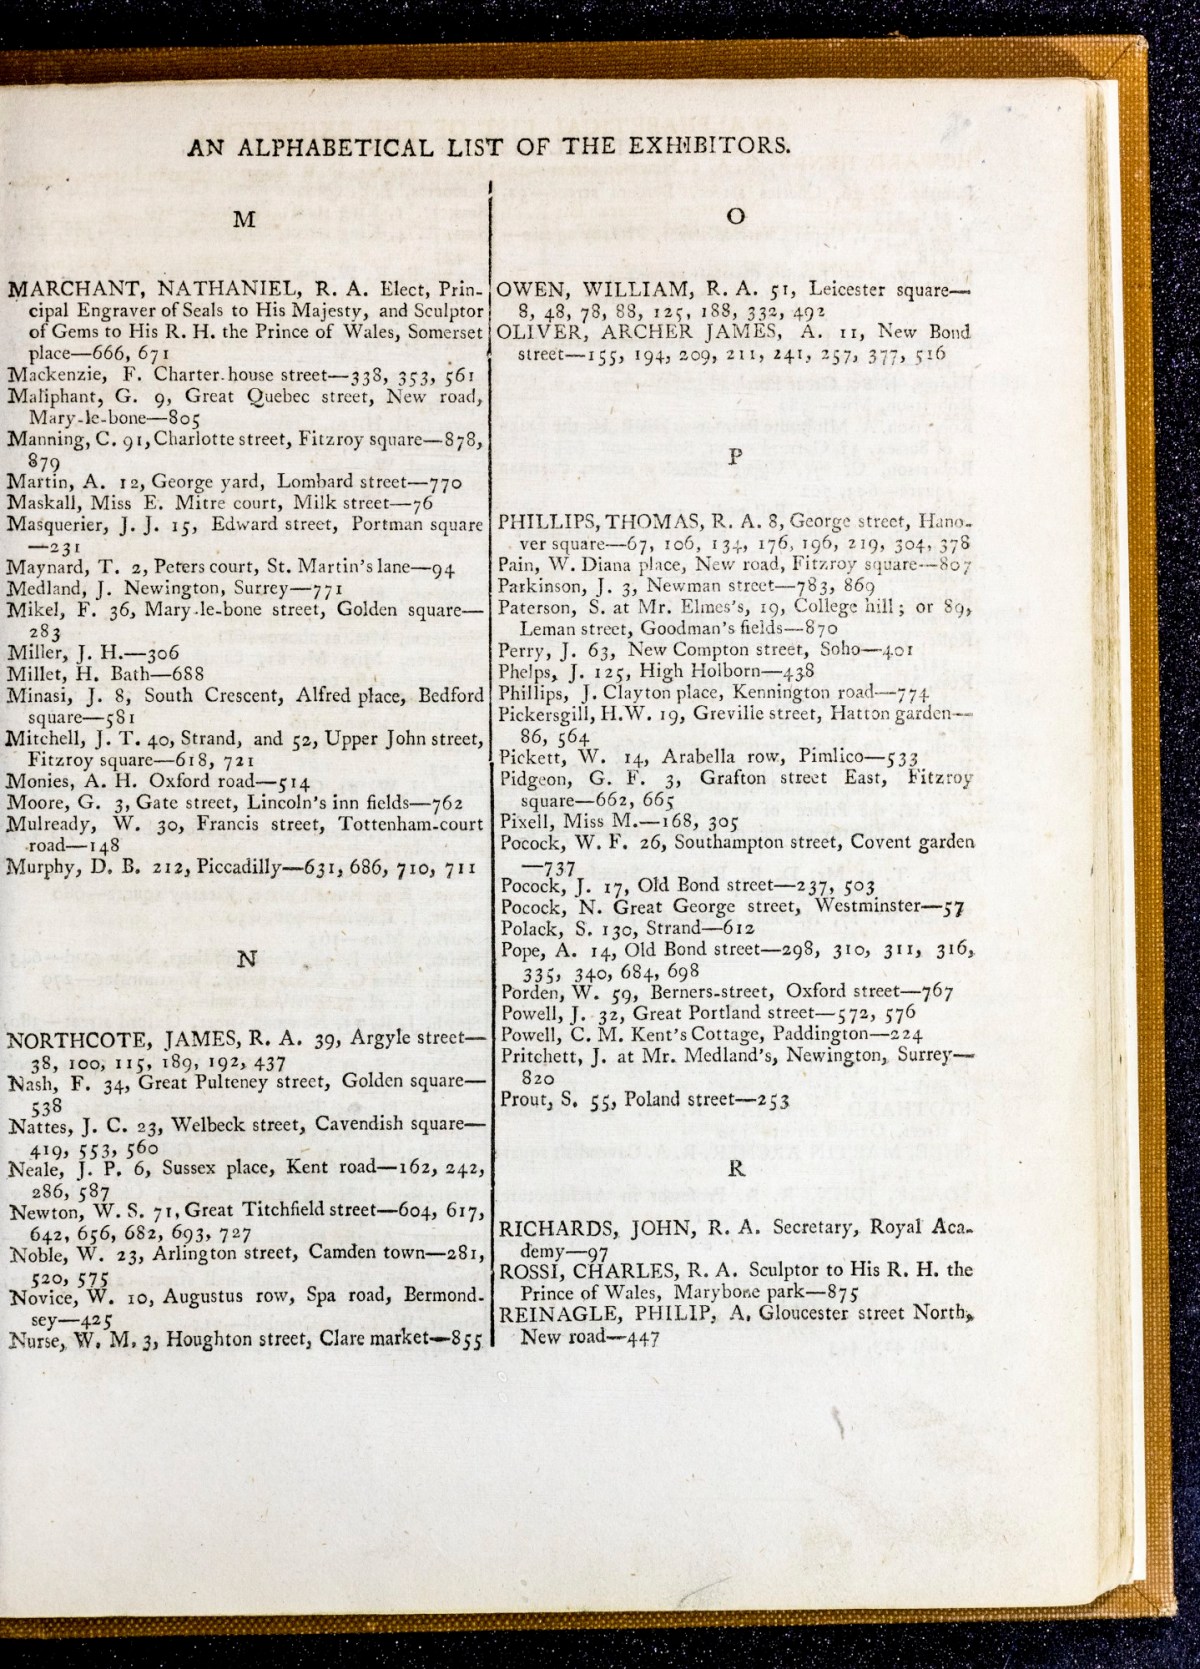 AN ALPHABETICAL LIST OF THE EXHIBITORS.
M
MARCHANT, NATHANIEL, R. A. Elect, Prin-
cipal Engraver of Seals to His Majesty, and Sculptor
of Gems to His R. H. the Prince of Wales, Somerset
place—666, 671
Mackenzie, F. Charter-house street—338, 353, 561
Maliphant, G. 9, Great Quebec street, New road,
Mary-le-bone—805
Manning, C. 91, Charlotte street, Fitzroy square—878,
879
Martin, A. 12, George yard, Lombard street—770
Maskall, Miss E. Mitre court, Milk street—76
Masquerier, J. J. 15, Edward street, Portman square
—231
Maynard, T. 2, Peters court, St. Martin's lane—94
Medland, J. Newington, Surrey—771
Mikel, F. 36, Mary-le-bone street, Golden square—
283
Miller, J. H.—306
Millet, H. Bath—688
Minasi, J. 8, South Crescent, Alfred place, Bedford
square—581
Mitchell, J. T. 40, Strand, and 52, Upper John street,
Fitzroy square—618, 721
Monies, A. H. Oxford road—514
Moore, G. 3, Gate street, Lincoln's inn fields—762
Mulready, W. 30, Francis street, Tottenham-court
road—148
Murphy, D. B. 212, Piccadilly—631, 686, 710, 711
N
NORTHCOTE, JAMES, R. A. 39, Argyle street—
38, 100, 115, 189, 192, 437
Nash, F. 34, Great Pulteney street, Golden square—
538
Nattes, J. C. 23, Welbeck street, Cavendish square—
419, 553, 560
Neale, J. P. 6, Sussex place, Kent road—162, 242,
286, 587
Newton, W. S. 71, Great Titchfield street—604, 617,
642, 656, 682, 693, 727
Noble, W. 23, Arlington street, Camden town—281,
520, 575
Novice, W. 10, Augustus row, Spa road, Bermond-
sey—425
Nurse, W. M. 3, Houghton street, Clare market—855
O
OWEN, WILLIAM, R. A. 51, Leicester square—
8, 48, 78, 88, 125, 188, 332, 492
OLIVER, ARCHER JAMES, A. 11, New Bond
street—155, 194, 209, 211, 241, 257, 377, 516
P
PHILLIPS, THOMAS, R. A. 8, George street, Hano-
ver square—67, 106, 134, 176, 196, 219, 304, 378
Pain, W. Diana place, New road, Fitzroy square—807
Parkinson, J. 3, Newman street—783, 869
Paterson, S. at Mr. Elmes's, 19, College hill; or 89,
Leman street, Goodman's fields—870
Perry, J. 63, New Compton street, Soho—401
Phelps, J. 125, High Holborn—438
Phillips, J. Clayton place, Kennington road—774
Pickersgill, H.W. 19, Greville street, Hatton garden—
86, 564
Pickett, W. 14, Arabella row, Pimlico—533
Pidgeon, G. F. 3, Grafton street East, Fitzroy
square—662, 665
Pixell, Miss M.—168, 305
Pocock, W. F. 26, Southampton street, Covent garden
—737
Pocock, J. 17, Old Bond street—237, 503
Pocock, N. Great George street, Westminster—57
Polack, S. 130, Strand—612
Pope, A. 14, Old Bond street—298, 310, 311, 316,
335, 340, 684, 698
Porden, W. 59, Berners-street, Oxford street—767
Powell, J. 32, Great Portland street—572, 576
Powell, C. M. Kent's Cottage, Paddington—224
Pritchett, J. at Mr. Medland's, Newington, Surrey—
820
Prout, S. 55, Poland street—253
R
RICHARDS, JOHN, R. A. Secretary, Royal Aca-
demy—97
ROSSI, CHARLES, R. A. Sculptor to His R. H. the
Prince of Wales, Marybone park—875
REINAGLE, PHILIP, A. Gloucester street North,
New road—447